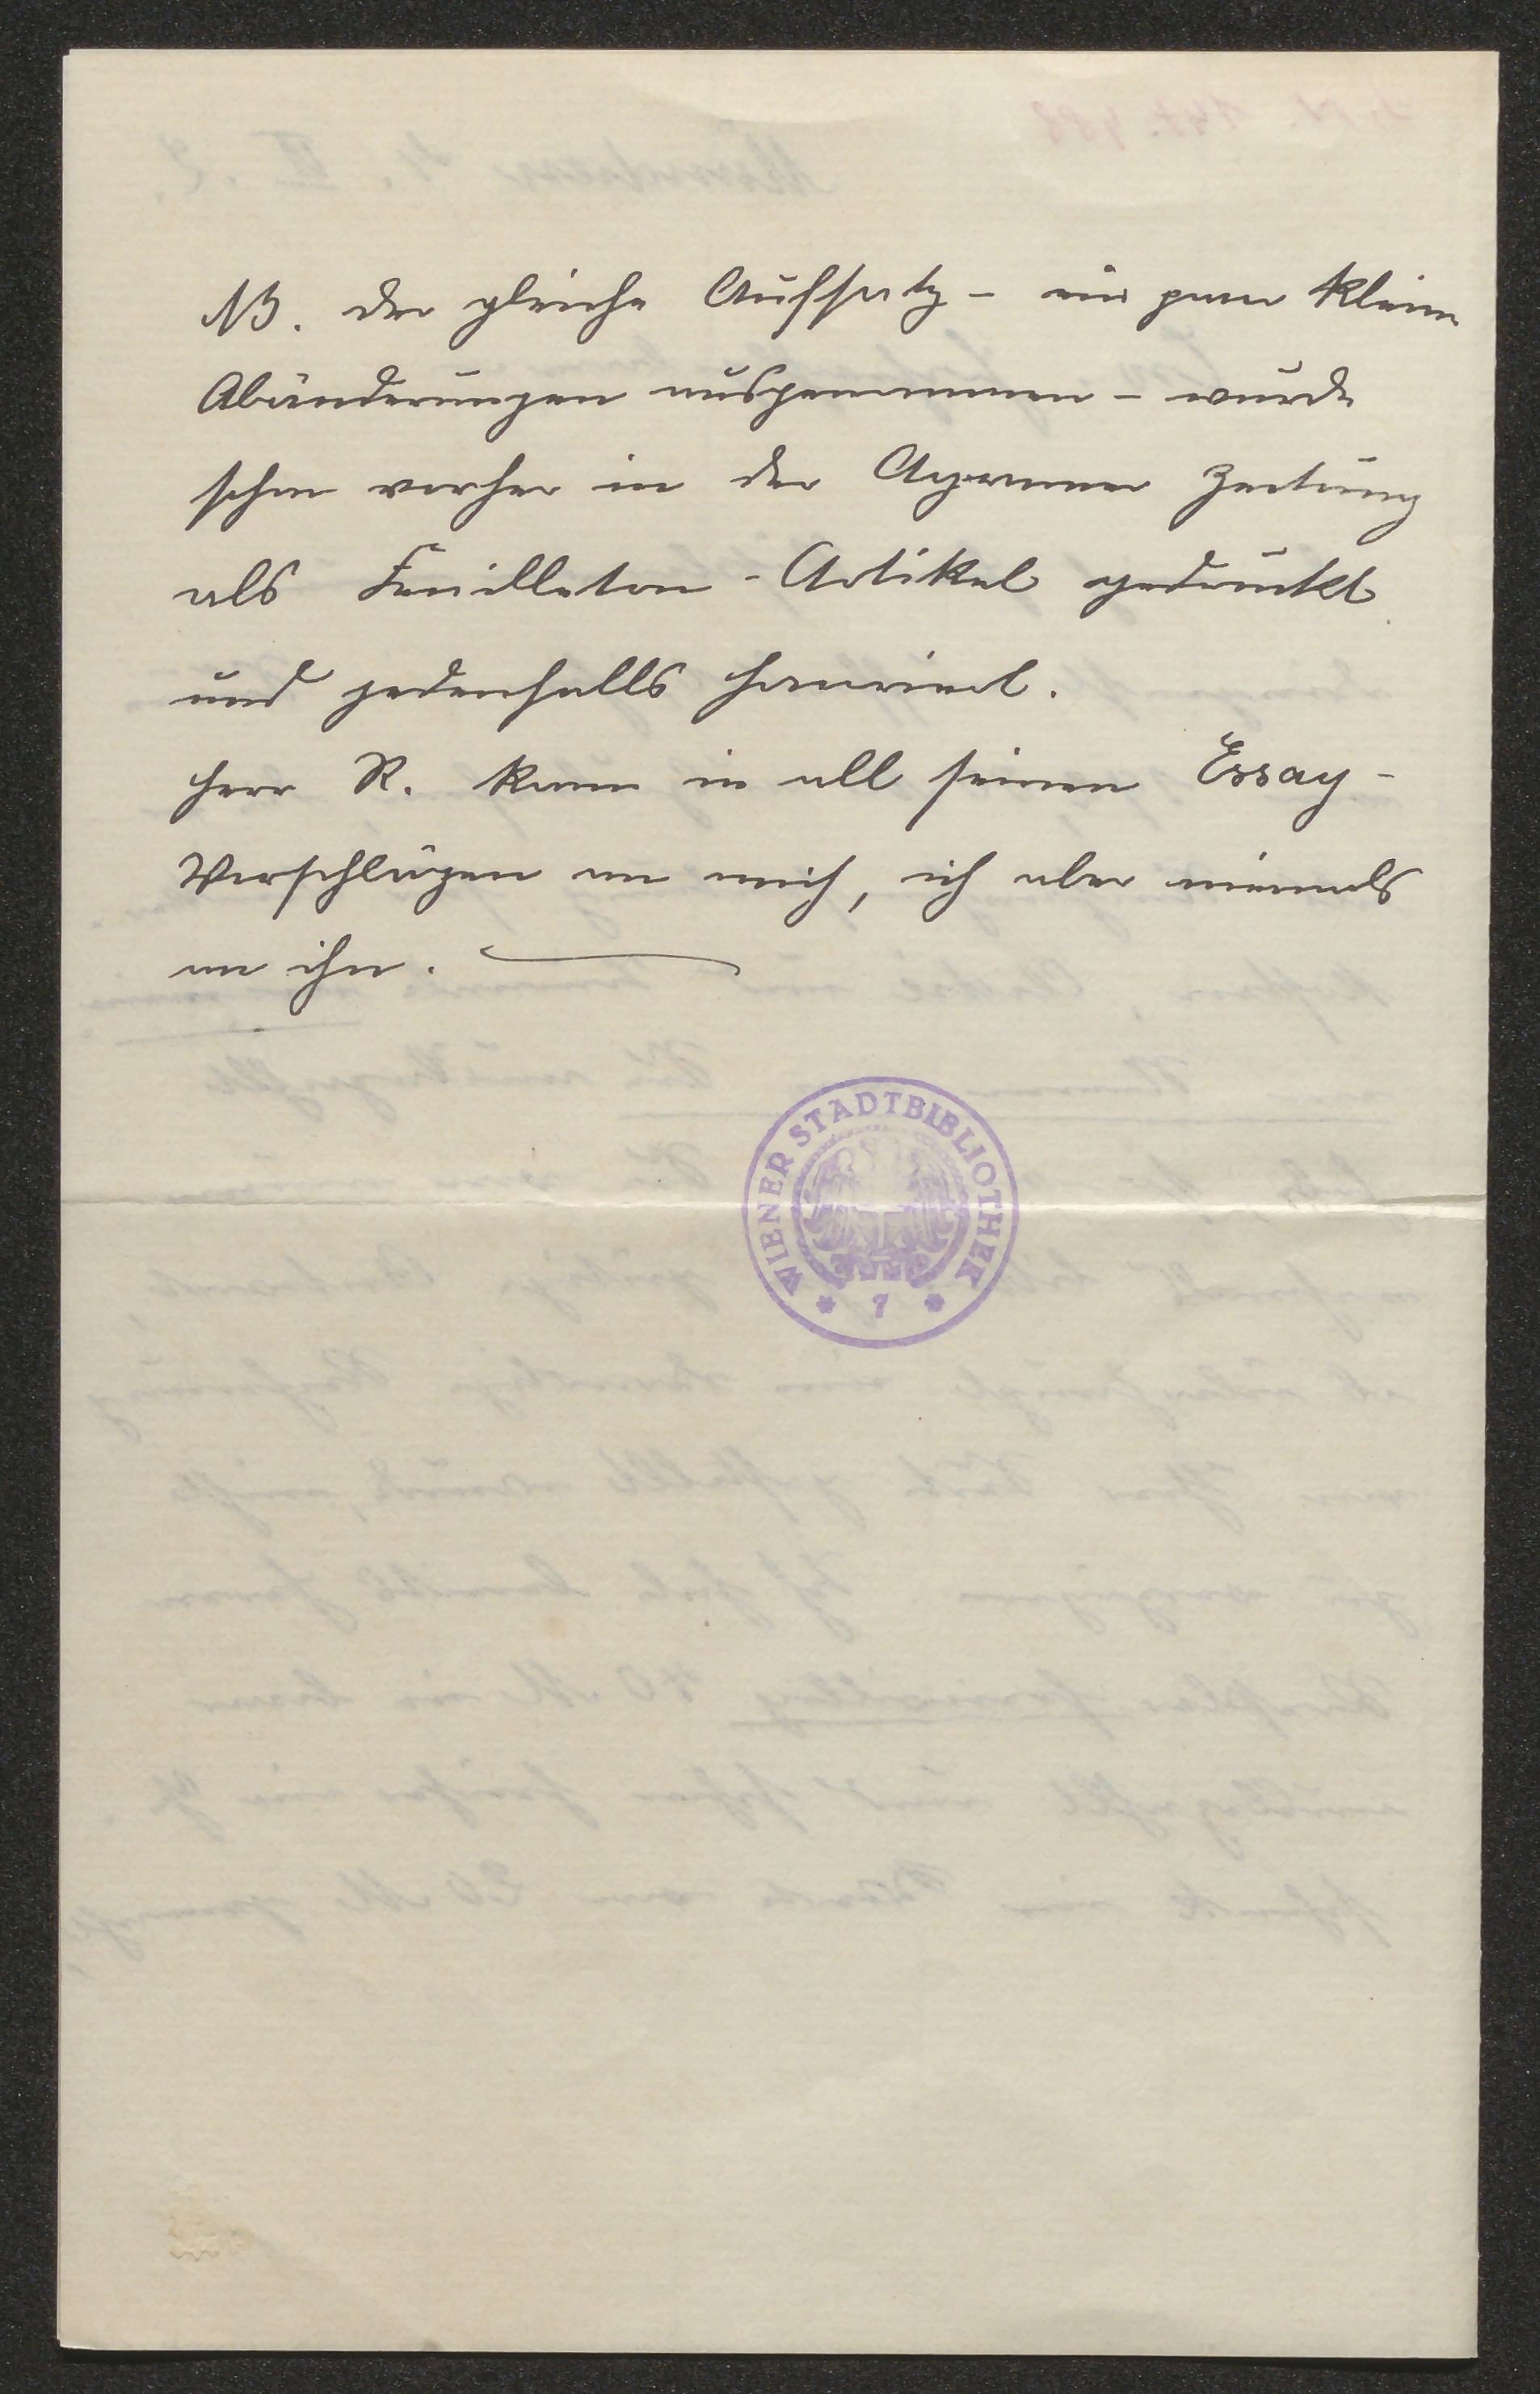 NB. Der gleiche Aufsatz – ein paar kleine
Abänderungen ausgenommen – wurde
schon vorher in der Agramer Zeitung
als Feuilleton-Artikel gedruckt
und jedenfalls honoriert.
Herr R. kam in all seinen Essay-
Vorschlägen an mich, ich aber niemals
an ihn.
WIENER STADTBIBLIOTHEK
* 7 *